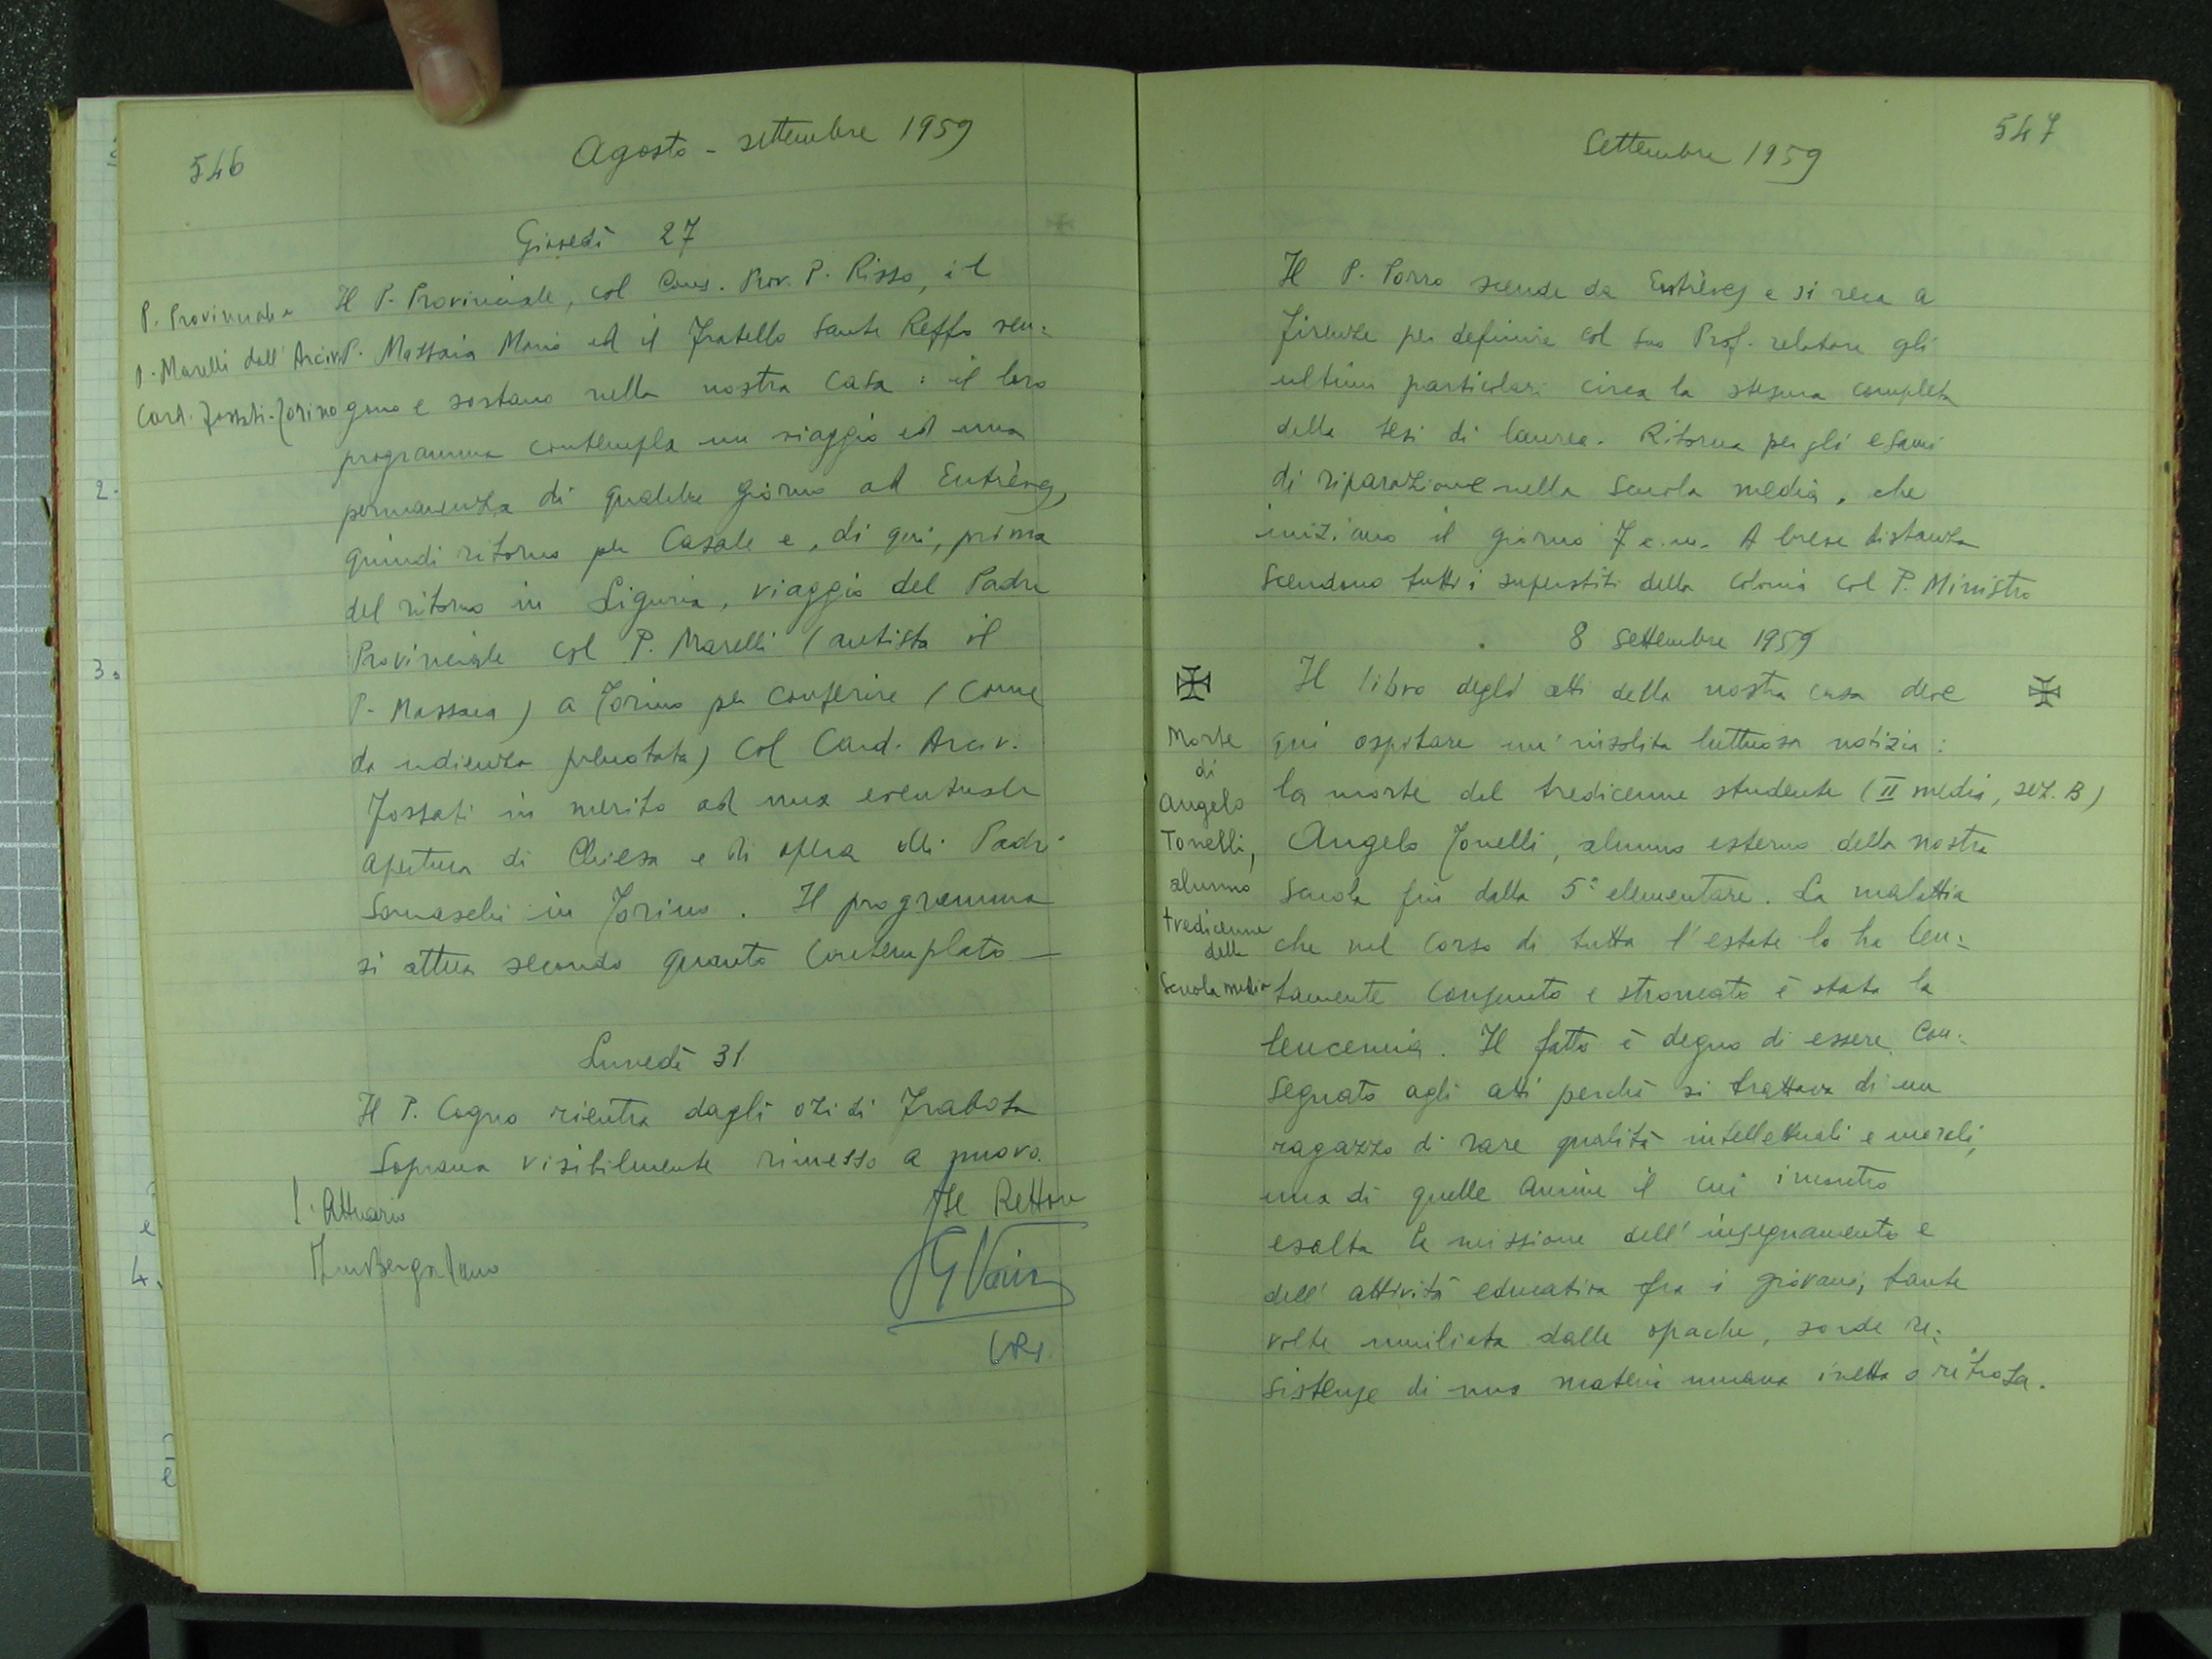 546
Agosto - settembre 1959
Giovedì 27
P. Provinciale e
P. Marelli dall' Arciv.
Card. Fossati - Torino
Il P. Provinciale, col Cons. Prov. P. Risso, il
P. Massaia Mario ed il Fratello Sante Reffo ven:
gono e sostano nella nostra casa: il loro
programma contempla un viaggio ed una
permanenza di qualche giorno ad Entrèves,
quindi ritorno per Casale e, di qui, prima
del ritorno in Liguria, viaggio del Padre
Provinciale col P. Marelli (autista il
P. Massaia) a Torino per conferire (come
da udienza prenotata) col Card. Arciv.
Fossati in merito ad una eventuale
apertura di Chiesa e di opera dei Padri
Somaschi in Torino. Il programma
si attua secondo quanto contemplato —
Lunedì 31
Il P. Cogno rientra dagli ozi di Frabosa
Soprana visibilmente rimesso a nuovo.
L'Attuario
Il Rettore
547
Settembre 1959
Il P. Porro scende da Entrèves e si reca a
Firenze per definire col suo Prof. relatore gli
ultimi particolari circa la stesura completa
della tesi di laurea. Ritorna per gli esami
di riparazione nella scuola media, che
iniziano il giorno 7 c.m. A breve distanza
scendono tutti i superstiti della colonia col P. Ministro
8 settembre 1959
Morte
di
Angelo
Tonelli,
alunno
tredicenne
della
Scuola media
Il libro degli atti della nostra casa deve
qui ospitare un' insolita luttuosa notizia:
la morte del tredicenne studente (II media, sez. B)
Angelo Tonelli, alunno esterno della nostra
scuola fin dalla 5ª elementare. La malattia
che nel corso di tutta l'estate lo ha len:
tamente consunto e stroncato è stata la
leucemia. Il fatto è degno di essere con:
segnato agli atti perchè si trattava di un
ragazzo di rare qualità intellettuali e morali,
una di quelle anime il cui incontro
esalta la missione dell' insegnamento e
dell' attività educativa fra i giovani, tante
volte umiliata dalle opache, sorde re:
sistenze di una materia umana inetta o ritrosa.